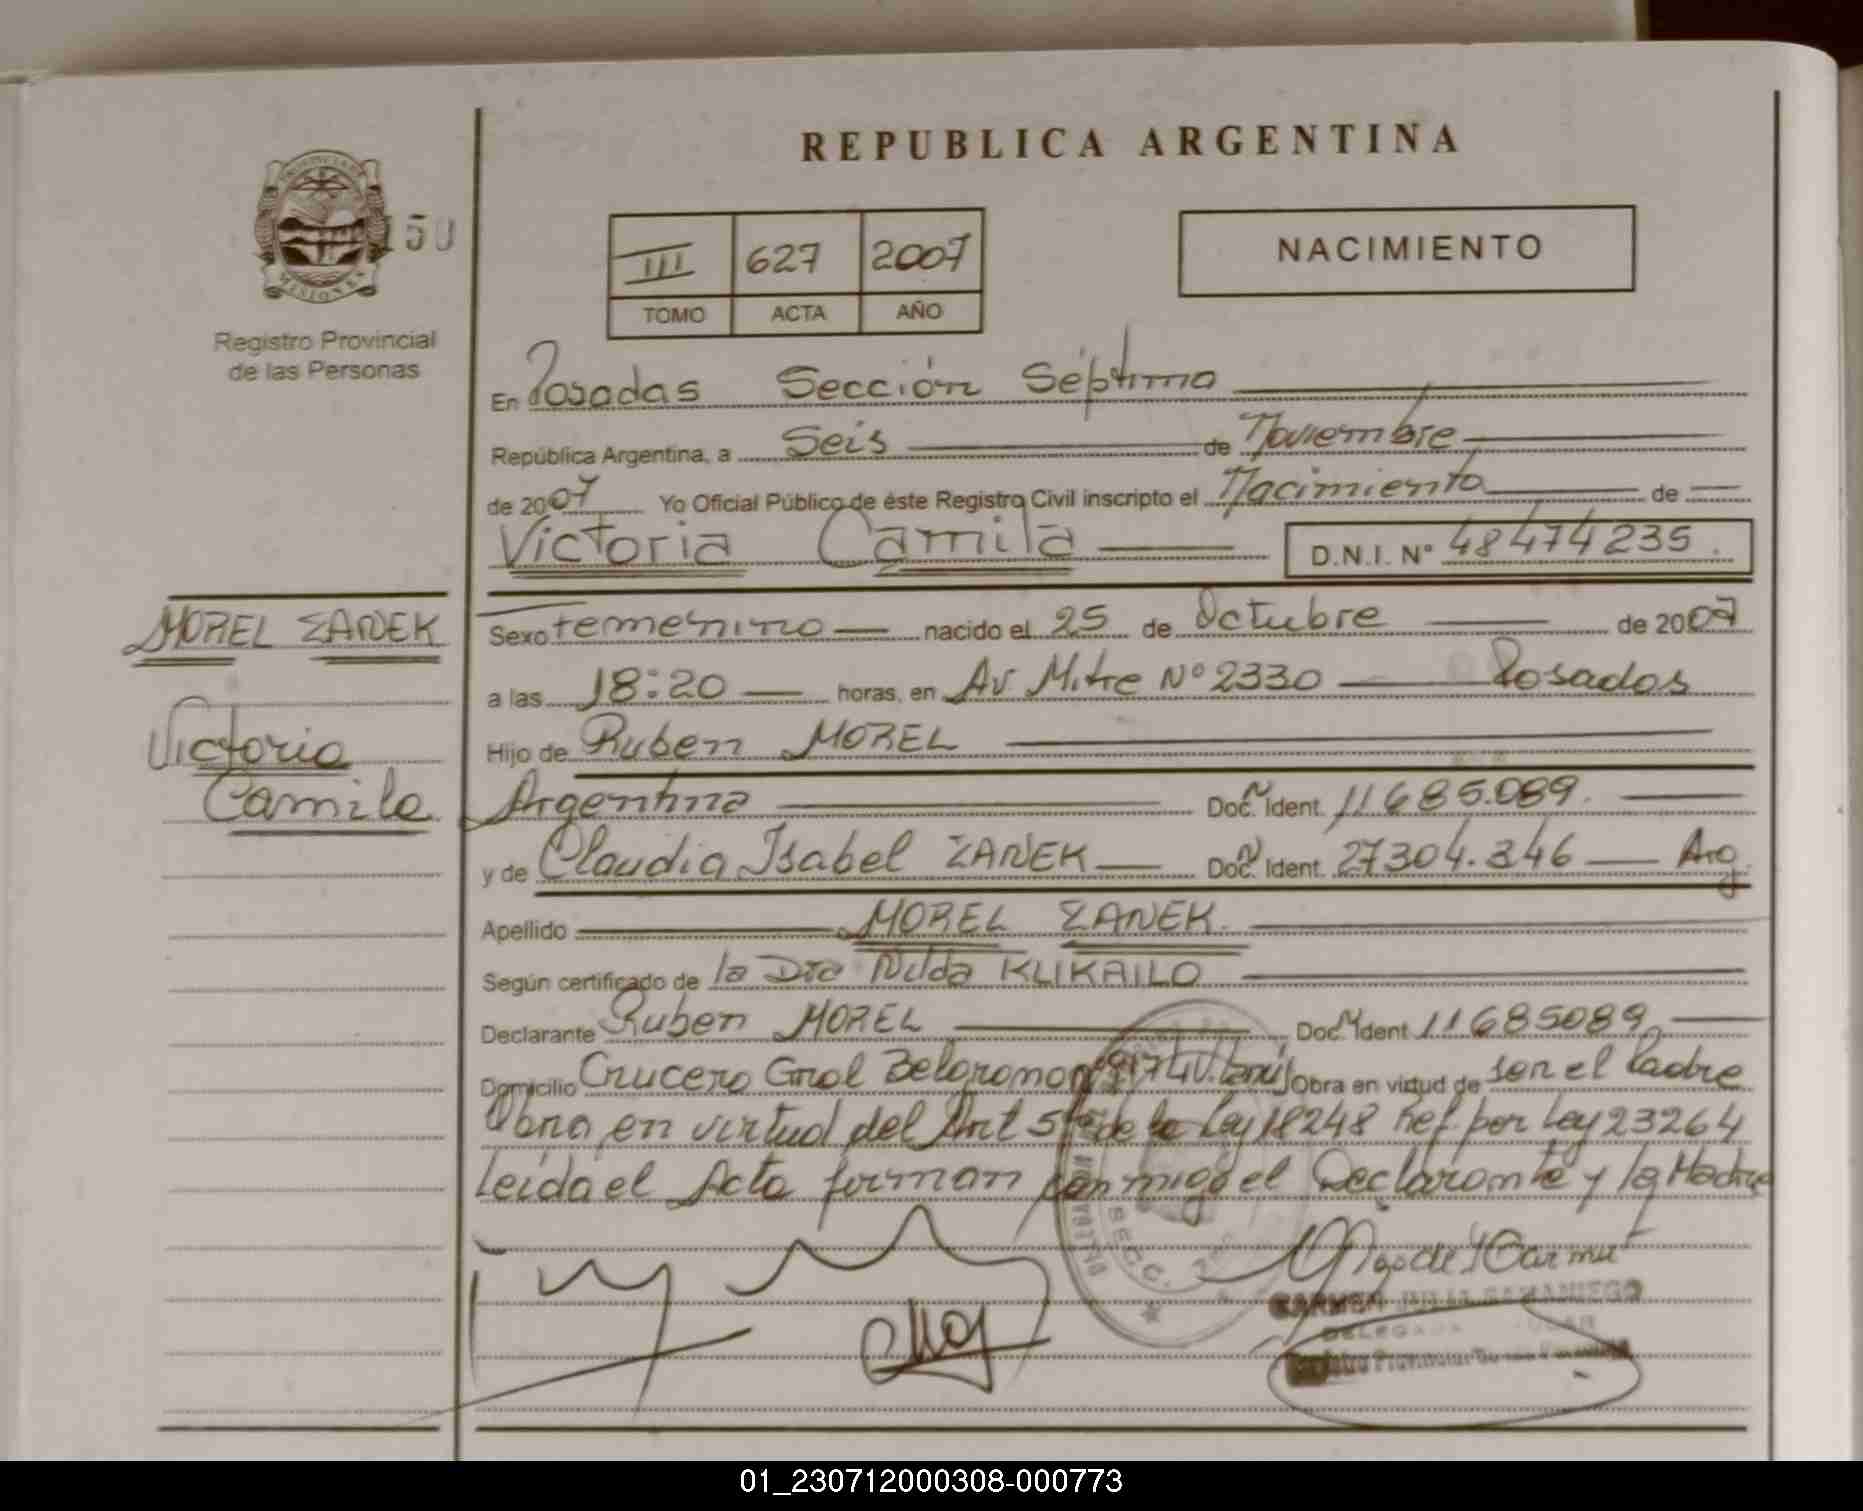 REPUBLICA ARGENTINA
PROVINCIA DE
MISIONES
150
Registro Provincial
de las Personas
III 627 2007
TOMO ACTA AÑO
NACIMIENTO
En Posadas Sección Séptima
República Argentina, a Seis de Noviembre
de 2007 Yo Oficial Público de éste Registro Civil inscripto el Nacimiento de
Victoria Camila D.N.I. Nº 48474235.
MOREL ZANEK
Victoria
Camila
Sexo femenino nacido el 25 de Octubre de 2007
a las 18:20 horas, en Av. Mitre Nº 2330 Posadas
Hijo de Ruben MOREL
Argentina Doc. Ident. 11.685.089.
y de Claudia Isabel ZANEK Doc. Ident. 27304.346 Arg.
Apellido MOREL ZANEK.
Según certificado de la Dra Nilda KLIKAILO
Declarante Ruben MOREL Doc. Ident. 11685089
Domicilio Crucero Gral Belgrano Obra en virtud de ser el Padre
Obra en virtud del Art 5 de la Ley 18248 Ref por Ley 23264
Leida el Acta firman conmigo el Declarante y la Madre
SECC.
CARMEN
Registro Provincial
01_230712000308-000773